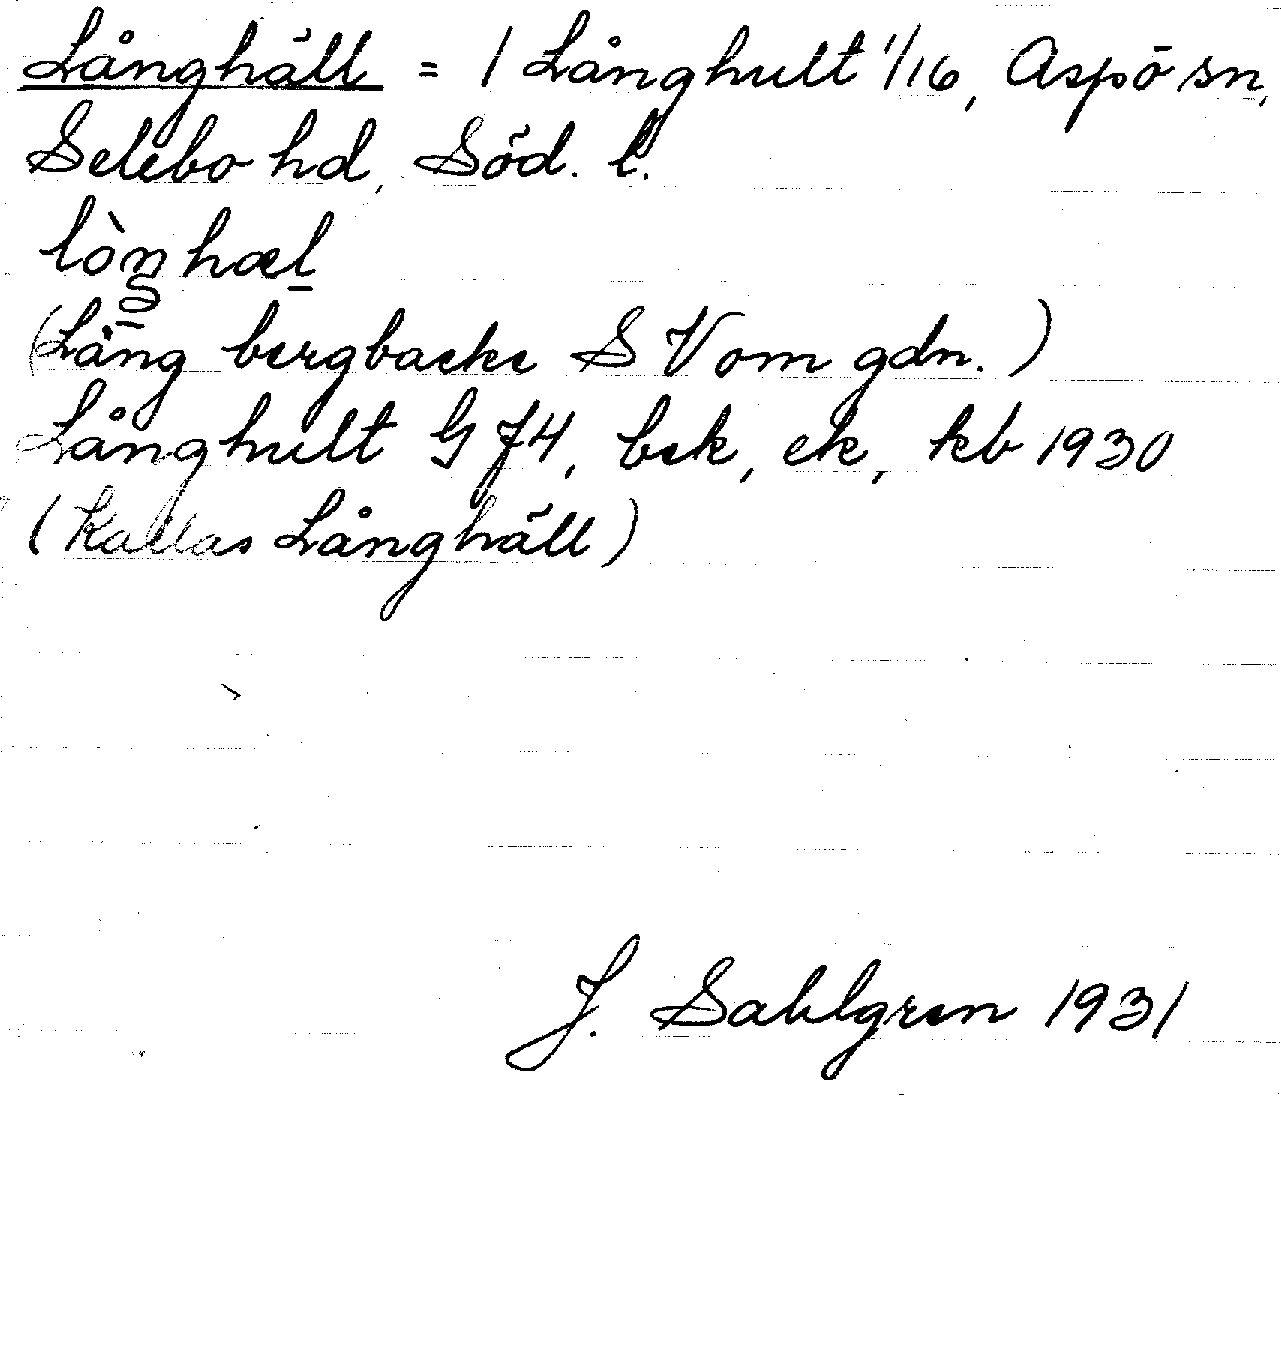 Långhäll = / Långhult 1/16, Aspö sn,
Selebo hd, Söd. l.
lòŋhæl
(Lång bergbacke SV om gdn.)
Långhult GJ4, bek, ek, kb 1930
(Kallas Långhäll)
J. Sahlgren 1931